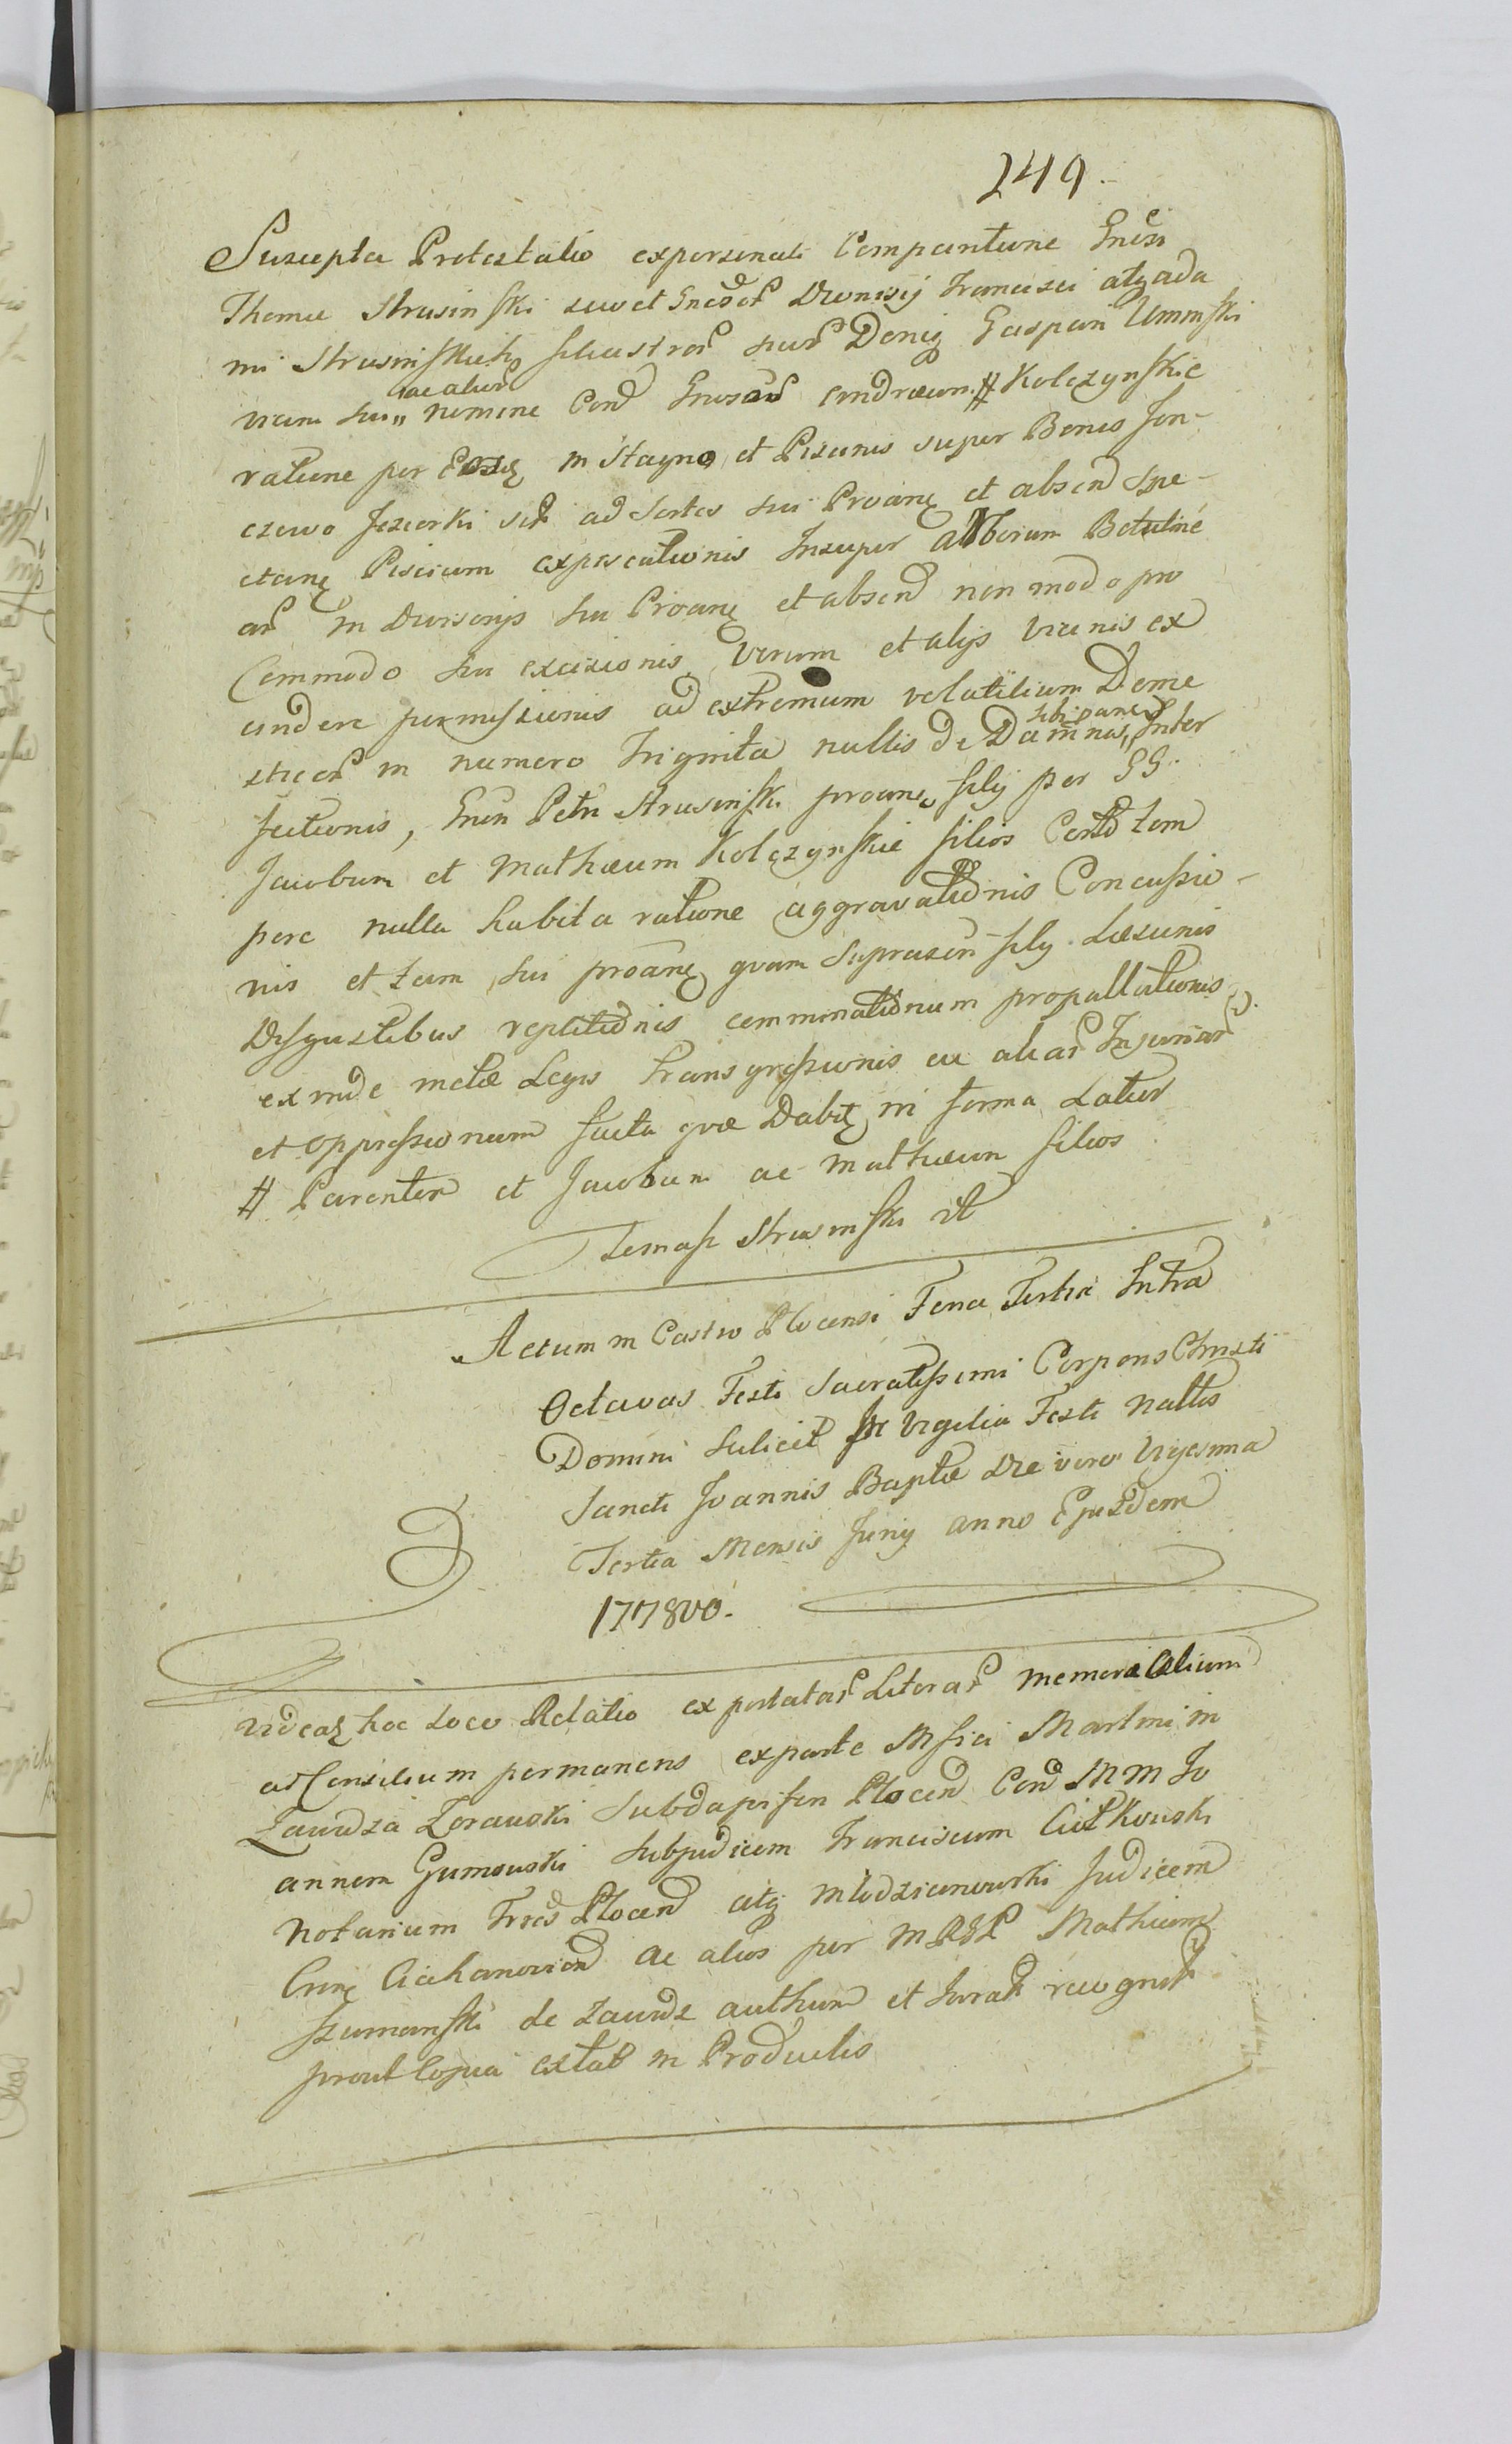 249.
Suscepta Protestatio ex personali Comparitione Gnesi
Thomæ Strusinski suo et Gnesor Dionisij Francisci atq Ada
mi Strusinskich filiastror suor Deniq Gaspari Uminski
vicini sui ac alior nomine Cond Gnosum Andræum # Kolczynskie
ratione per Eosdq in Stagno et Piscinis super Bonis Jon-
czewo Jeziorki sit ad Sortes sui Proanę et absend spe-
ctanę Piscium expiscationis Insuper Arborum Betuline
ar in Divisonijs sui Proanę et absend non modo pro
Commodo sui excisionis Verum et alijs vicinis ex
cindere permissionis ad extremum volatilium Dome
sticor in numero Triginta nullis de Damnis sibi Inter
fectionis, Gnen Petri Strusinski proanę filij per GG.
Jacobum et Mathæum Kolczynskie filios Contd tem
pore nulla habita ratione aggravationis Concussio-
nis et tam sui proanę quam suprascri filij Læsionis
Disgustibus repletionis comminationum propallationis
exinde metæ Legis transgressionis ac aliar Injuriar
et oppressionum facta quæ Dabit in forma Latior
# Parentem et Jacobum ac Mathæum filios
Tomasz Strusinski
Actum in Castro Plocensi Feria Tertia Intra
Octavas Festi Sacratissimi Corporis Christi
Domini Scilicet In Vigilia Festi Nattis
Sancti Joannis Baptæ Die vero Vigesima
Tertia Mensis Junij Anno Ejusdem
1778vo.
Videaz hoc Loco Relatio ex portatar Literar Memorialium
ad Consilium permanens ex parte Msici Martini in
Zawdza Zorawski Subdapiferi Plocen Cond MM Jo
annem Gumowski Subjudicem Franciscum Ciolkowski
Notarium Trres Plocen atq Mlodzianowski Judicem
Crinę Ciechanovien ac alios per MRSP Mathiam
Szumanski de Zawdz authum et Jurat recognit
prout Copia extat in Productis